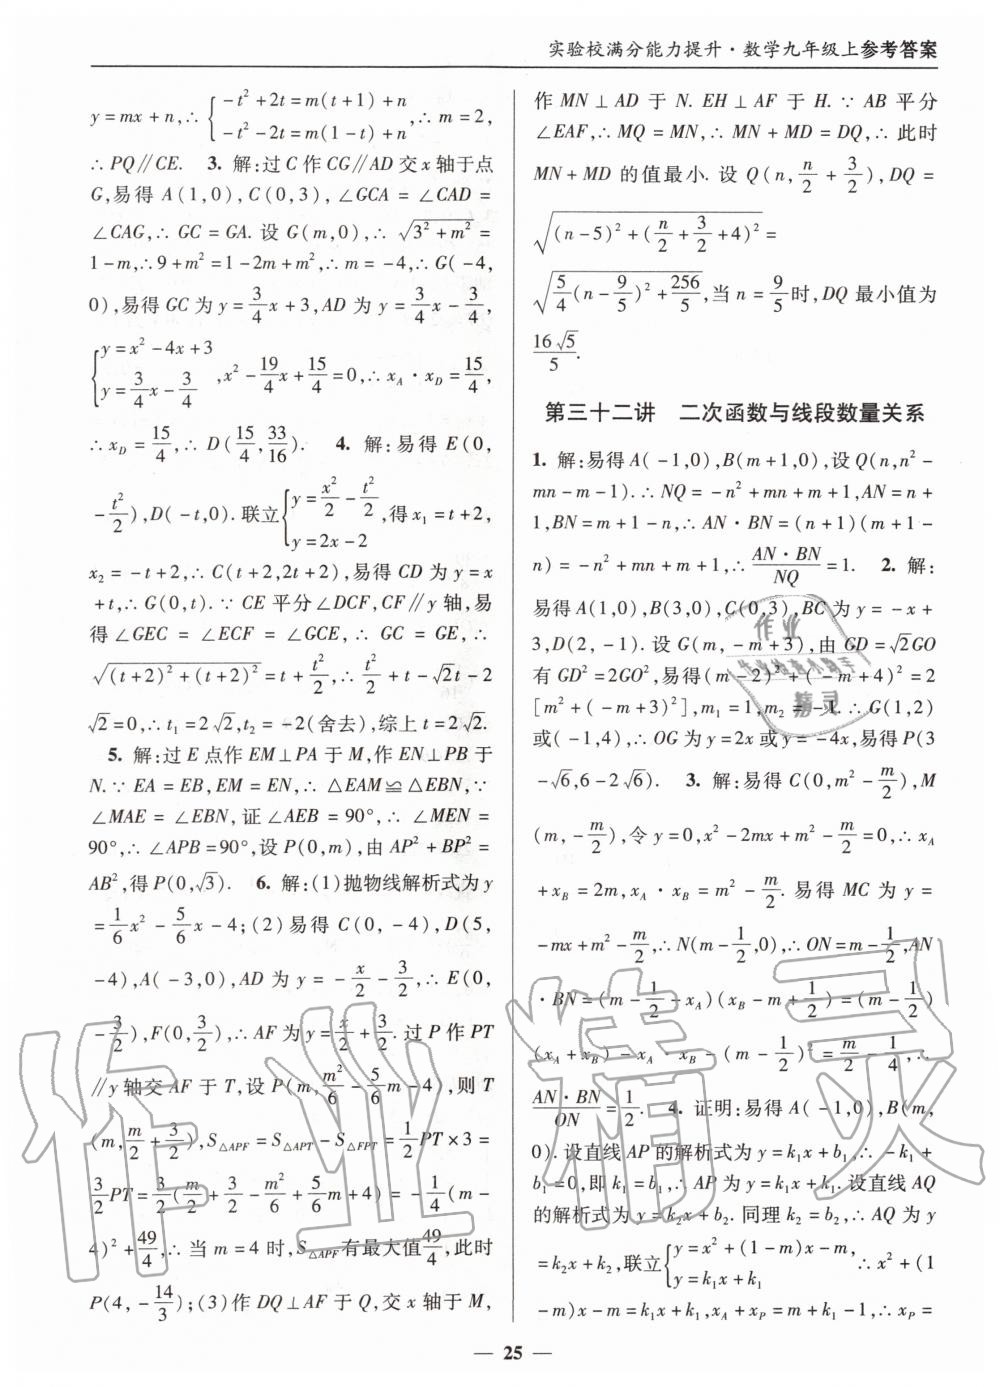 实验校满分能力提升·数学九年级上参考答案
y=mx+n,∴{-t²+2t=m(t+1)+n
-t²-2t=m(1-t)+n,∴m=2,
∴PQ∥CE. 3. 解:过C作CG∥AD交x轴于点
G,易得A(1,0),C(0,3),∠GCA=∠CAD=
∠CAG,∴GC=GA.设G(m,0),∴√(3²+m²)=
1-m,∴9+m²=1-2m+m²,∴m=-4,∴G(-4,
0),易得GC为y=3/4x+3,AD为y=3/4x-3/4,
{y=x²-4x+3
y=3/4x-3/4,x²-19/4x+15/4=0,∴x_A·x_D=15/4,
∴x_D=15/4,∴D(15/4,33/16). 4. 解:易得E(0,
-t²/2),D(-t,0).联立{y=x²/2-t²/2
y=2x-2,得x₁=t+2,
x₂=-t+2,∴C(t+2,2t+2),易得CD为y=x
+t,∴G(0,t).∵CE平分∠DCF,CF∥y轴,易
得∠GEC=∠ECF=∠GCE,∴GC=GE,∴
√((t+2)²+(t+2)²)=t+t²/2,∴t²/2+t-√2t-2
√2=0,∴t₁=2√2,t₂=-2(舍去),综上t=2√2.
5. 解:过E点作EM⊥PA于M,作EN⊥PB于
N.∵EA=EB,EM=EN,∴△EAM≌△EBN,∵
∠MAE=∠EBN,证∠AEB=90°,∴∠MEN=
90°,∴∠APB=90°,设P(0,m),由AP²+BP²=
AB²,得P(0,√3). 6. 解:(1)抛物线解析式为y
=1/6x²-5/6x-4;(2)易得C(0,-4),D(5,
-4),A(-3,0),AD为y=-x/2-3/2,∴E(0,
-3/2),F(0,3/2),∴AF为y=x/2+3/2.过P作PT
∥y轴交AF于T,设P(m,m²/6-5/6m-4),则T
(m,m/2+3/2),S△APF=S△APT-S△FPT=1/2PT×3=
3/2PT=3/2(m/2+3/2-m²/6+5/6m+4)=-1/4(m-
4)²+49/4,∴当m=4时,S△APF有最大值49/4,此时
P(4,-14/3);(3)作DQ⊥AF于Q,交x轴于M,
作MN⊥AD于N.EH⊥AF于H.∵AB平分
∠EAF,∴MQ=MN,∴MN+MD=DQ,∴此时
MN+MD的值最小.设Q(n,n/2+3/2),DQ=
√((n-5)²+(n/2+3/2+4)²)=
√(5/4(n-9/5)²+256/5),当n=9/5时,DQ最小值为
16√5/5.
第三十二讲 二次函数与线段数量关系
1. 解:易得A(-1,0),B(m+1,0),设Q(n,n²-
mn-m-1).∴NQ=-n²+mn+m+1,AN=n+
1,BN=m+1-n,∴AN·BN=(n+1)(m+1-
n)=-n²+mn+m+1,∴AN·BN/NQ=1. 2. 解:
易得A(1,0),B(3,0),C(0,3),BC为y=-x+
3,D(2,-1).设G(m,-m+3),由GD=√2GO
有GD²=2GO²,易得(m-2)²+(-m+4)²=2
[m²+(-m+3)²],m₁=1,m₂=-1.∴G(1,2)
或(-1,4),∴OG为y=2x或y=-4x,易得P(3
-√6,6-2√6). 3. 解:易得C(0,m²-m/2),M
(m,-m/2),令y=0,x²-2mx+m²-m/2=0,∴x_A
+x_B=2m,x_A·x_B=m²-m/2.易得MC为y=
-mx+m²-m/2,∴N(m-1/2,0),∴ON=m-1/2,AN
·BN=(m-1/2-x_A)(x_B-m+1/2)=(m-1/2)
(x_A+x_B)-x_A·x_B-(m-1/2)²=m/2-1/4,∴
AN·BN/ON=1/2. 4. 证明:易得A(-1,0),B(m,
0).设直线AP的解析式为y=k₁x+b₁,∴-k₁+
b₁=0,即k₁=b₁,∴AP为y=k₁x+k₁.设直线AQ
的解析式为y=k₂x+b₂.同理k₂=b₂,∴AQ为y
=k₂x+k₂,联立{y=x²+(1-m)x-m,
y=k₁x+k₁∴x²+(1
-m)x-m=k₁x+k₁,x_A+x_P=m+k₁-1,∴x_P=
— 25 —
作业
精灵
作业精灵